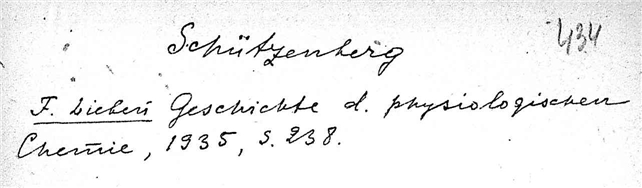 Schützenberg
434
F. Lieben Geschichte d. physiologischen
Chemie, 1935, S. 238.